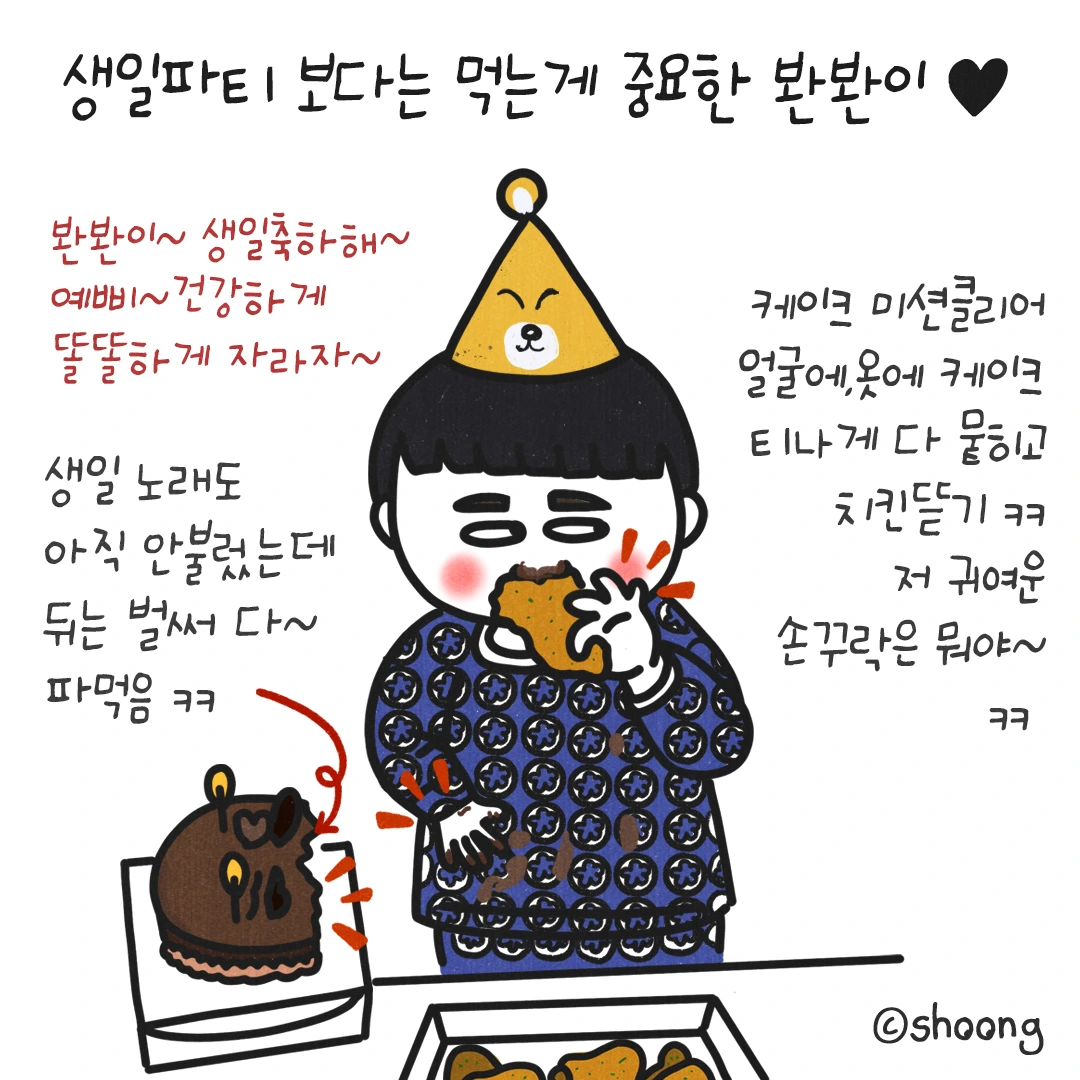 생일파티 보다는 먹는게 중요한 봔봔이 ♥
봔봔이~ 생일축하해~
예삐~건강하게
똘똘하게 자라자~
생일 노래도
아직 안불렀는데
뒤는 벌써 다~
파먹음 ㅋㅋ
케이크 미션클리어
얼굴에,옷에 케이크
티나게 다 뭍히고
치킨뜯기 ㅋㅋ
저 귀여운
손꾸락은 뭐야~
ㅋㅋ
©shoong